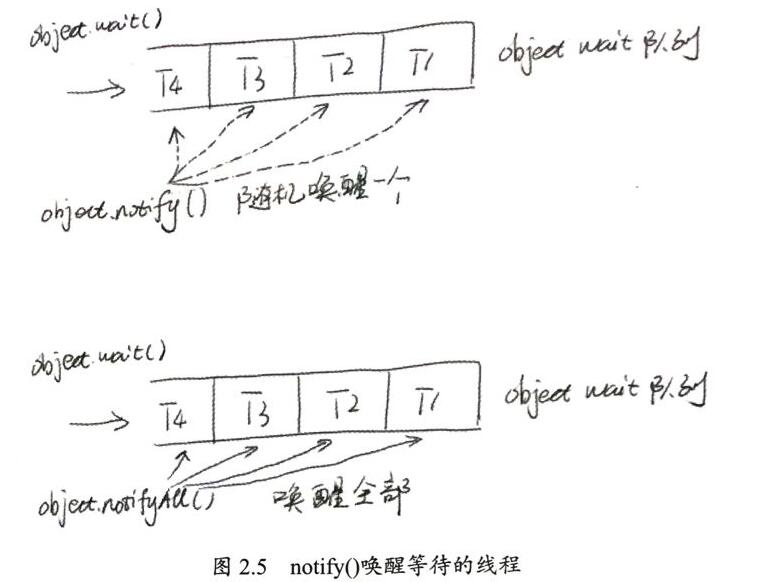 object.wait()
T4 T3 T2 T1 object wait 队列
object.notify() 随机唤醒一个
object.wait()
T4 T3 T2 T1 object wait 队列
object.notifyAll() 唤醒全部
图 2.5 notify()唤醒等待的线程